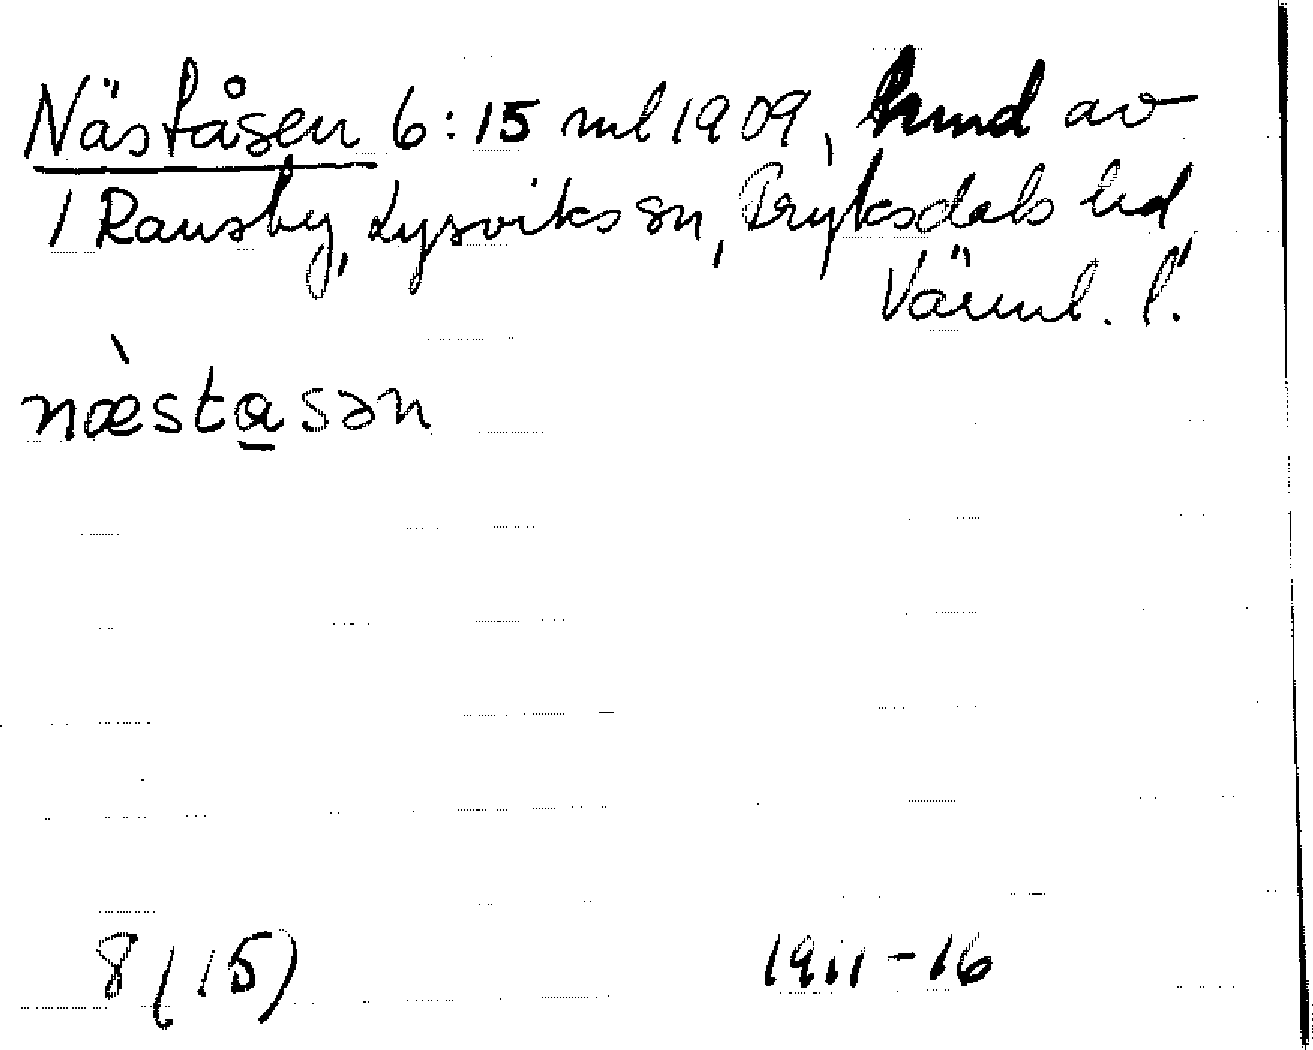 Näståsen 6:15 ml 1909, hmd av
1 Ransby, Lysviks sn, Fryksdals hd,
Värml. l.
næ̀stɑ̠sən
8 (15) 1911-16